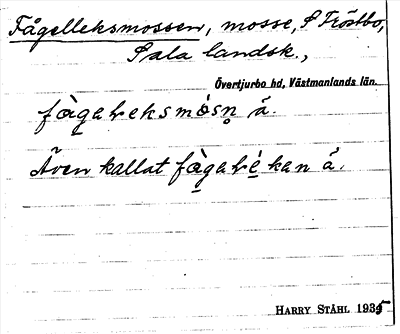 Fågelleksmossen, mosse, S Fröstbo,
Sala landsk.,
Övertjurbo hd, Västmanlands län.
fàgaleksmósn̥ ǎ.
Även kallat fàgalékan ǎ.
HARRY STÅHL 1935